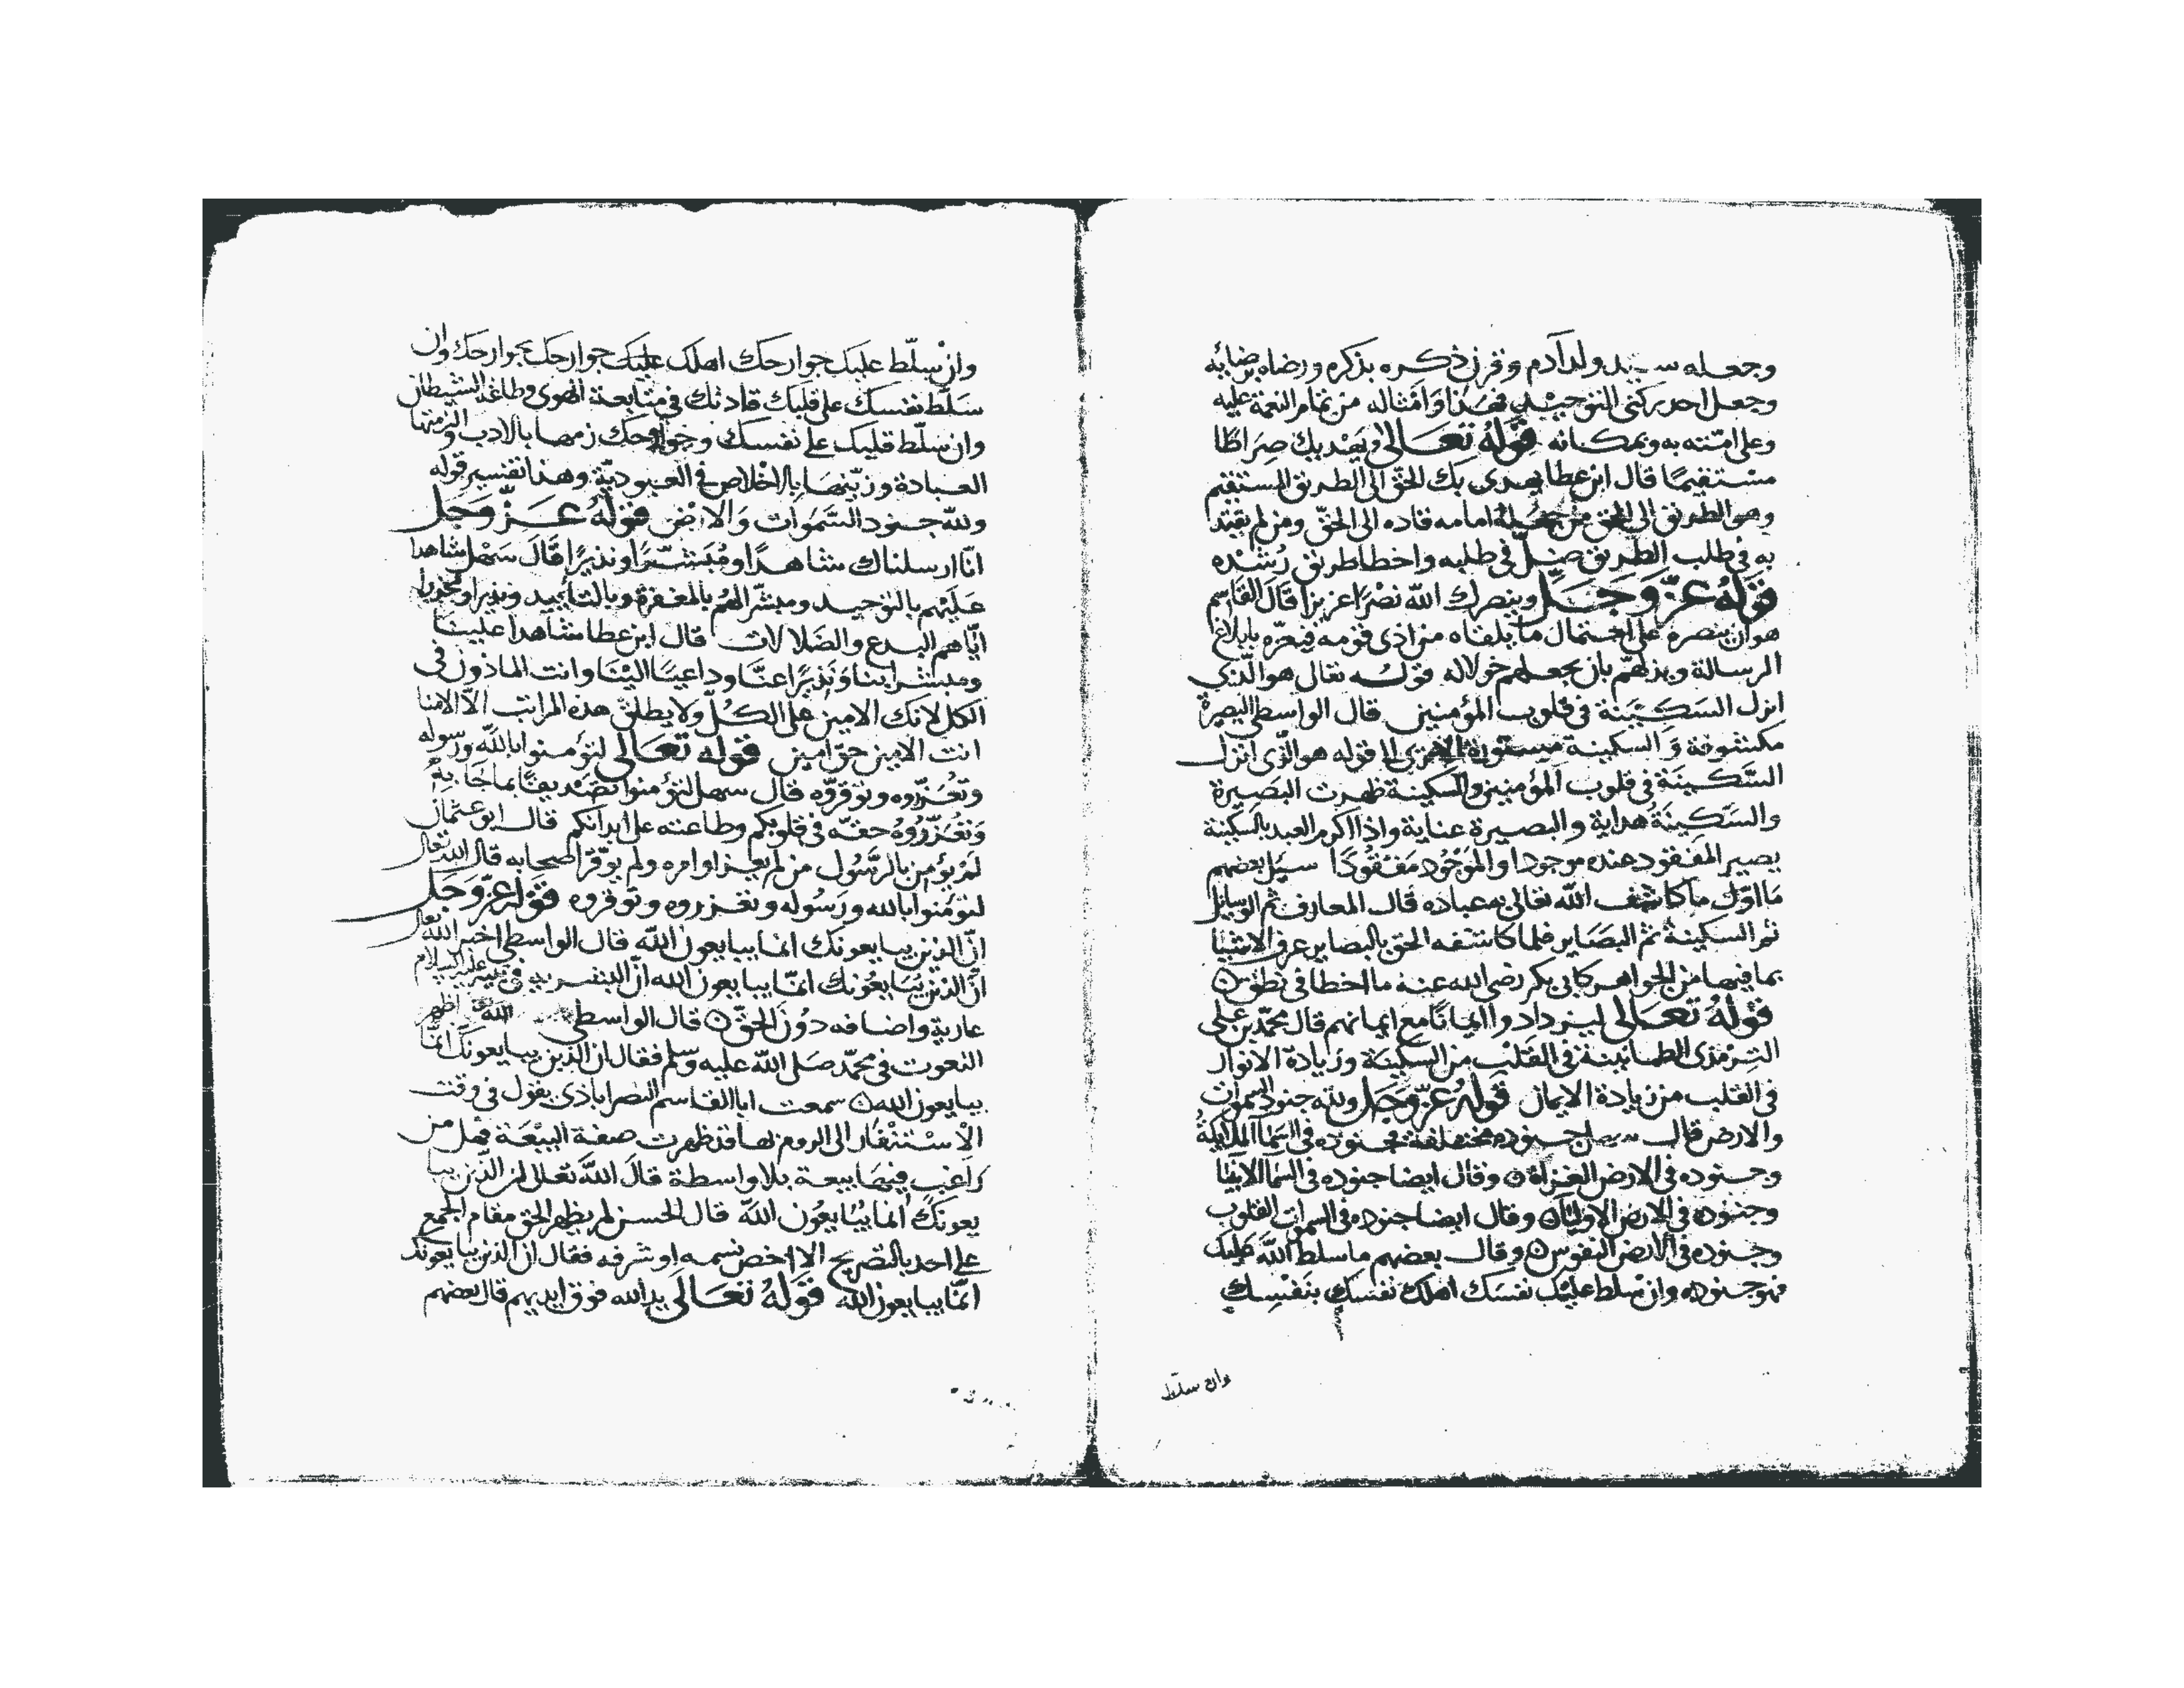 وجعله سيد ولد آدم وقرن ذكره بذكره ورضاه برضائه
وجعل احد ركنى التوحيد فهذا وامثاله من تمام النعمة عليه
وعلى امته به وبمكانه قوله تعالى ويهديك صراطا
مستقيما قال ابن عطا يهدى بك الحق الى الطريق المستقيم
وهو الطريق الى الحق من جعله امامه قاده الى الحق ومن لم يقتد
به فى طلب الطريق ضل فى طلبه واخطا طريق رشده
قوله عز وجل وينصرك الله نصرا عزيزا قال القاسم
هو ان ينصره على احتمال ما يلقاه من اذى قومه فيعزه بابلاغ
الرسالة ويذلهم بان يجعلهم خولا له قوله تعال هو الذي
انزل السكينة فى قلوب المؤمنين قال الواسطى البصيرة
مكشوفة والسكينة مستورة الا ترى الى قوله هو الذى انزل
السكينة فى قلوب المؤمنين والسكينة ظهرت البصيرة
والسكينة هداية والبصيرة عناية واذا اكرم العبد بالسكينة
يصير المفقود عنده موجودا والموجود مفقودا سيل بعضهم
ما اول ما كاشف الله تعالى به عباده قال المعارف ثم الوسايل
ثم السكينة ثم البصاير فلما كاشفه الحق بالبصاير عرف الاشيا
بما فيها من الجواهر كابى بكر رضى الله عنه ما اخطا فى نطق
قوله تعالى ليزدادوا ايمانا مع ايمانهم قال محمد بن على
الترمذى الطمانينة فى القلب من السكينة وزيادة الانوار
فى القلب من زيادة الايمان قوله عز وجل ولله جنود السموات
والارض قال سهل جنوده مختلفة فجنوده فى السما الملايكة
وجنوده فى الارض الغزاة وقال ايضا جنوده فى السما الانبيا
وجنوده فى الارض الاوليا وقال ايضا جنوده فى السموات القلوب
وجنوده فى الارض النفوس وقال بعضهم ما سلط الله عليك
فهو جنوده وان سلط عليك نفسك اهلك نفسك بنفسك
وان سلط
وان سلط عليك جوارحك اهلك عليك جوارحك بجوارحك وان
سلط نفسك على قلبك قادتك فى متابعة الهوى وطاعة الشيطان
وان سلط قلبك على نفسك وجوارحك زمها بالادب والزمتها
العبادة وزينها بالاخلاص فى العبودية وهذا تفسير قوله
ولله جنود السموات والارض قوله عز وجل
انا ارسلناك شاهدا ومبشرا ونذيرا قال سهل شاهدا
عليهم بالتوحيد ومبشرا لهم بالمغفرة وبالتاييد ونذيرا ومحذرا
اياهم البدع والضلالات قال ابن عطا شاهدا علينا
ومبشرا بنا ونذيرا عنا وداعيا الينا وانت الماذون فى
الكل لانك الامين على الكل ولا يطلق هذه المراتب الا الامنا
انت الامين حق امين قوله تعالى لتؤمنوا بالله ورسوله
وتعزروه وتوقروه قال سهل لتؤمنوا تصديقا بما جا به
وتعزروه حقه فى قلوبكم وطاعته على ابدانكم قال ابو عثمان
لم يؤمن بالرسول من لم يعز اوامره ولم يوقر اصحابه قال الله تعال
لتؤمنوا بالله ورسوله وتعزروه وتوقروه قوله عز وجل
ان الذين يبايعونك انما يبايعون الله قال الواسطى اخبر الله تعال
ان الذين يبايعونك انما يبايعون الله ان البشرية فى نبيه عليه السلام
عارية واضافه دون الحق قال الواسطى الله اظهر
النعوت فى محمد صلى الله عليه وسلم فقال ان الذين يبايعونك انما
يبايعون الله سمعت ابا القاسم النصراباذى يقول فى وقت
الاستنفار الى الروم عز لها قد ظهرت صفة البيعة فهل من
راغب فيها بيعة بلا واسطة قال الله تعلى ان الذين يبا
يعونك انما يبايعون الله قال الحسن لم يظهر الحق مقام الجمع
على احد بالتصريح الا اخص نسمه او شرفه فقال ان الذين يبايعونك
انما يبايعون الله قوله تعالى يد الله فوق ايديهم قال بعضهم